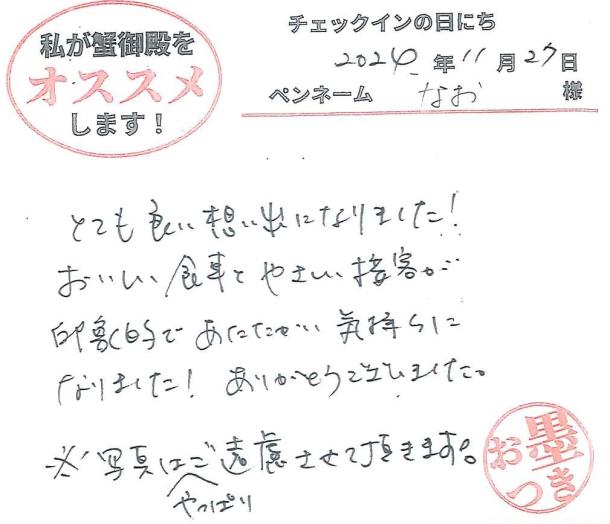 私が蟹御殿を
オススメ
します!
チェックインの日にち
2024年11月27日
ペンネーム なお 様
とても良い想い出になりました!
おいしい食事とやさしい接客が
印象的であたたかい気持ちに
なりました! ありがとうございました。
※写真はご遠慮させて頂きます。
やっぱり
お墨
つき